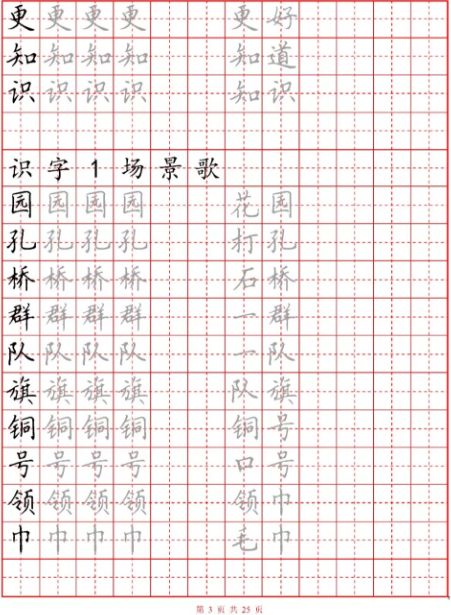 更更更更 更好
知知知知 知道
识识识识 知识
识字1场景歌
园园园园 花园
孔孔孔孔 打孔
桥桥桥桥 石桥
群群群群 一群
队队队队 一队
旗旗旗旗 队旗
铜铜铜铜 铜号
号号号号 口号
领领领领 领巾
巾巾巾巾 毛巾
第 3 页 共 25 页